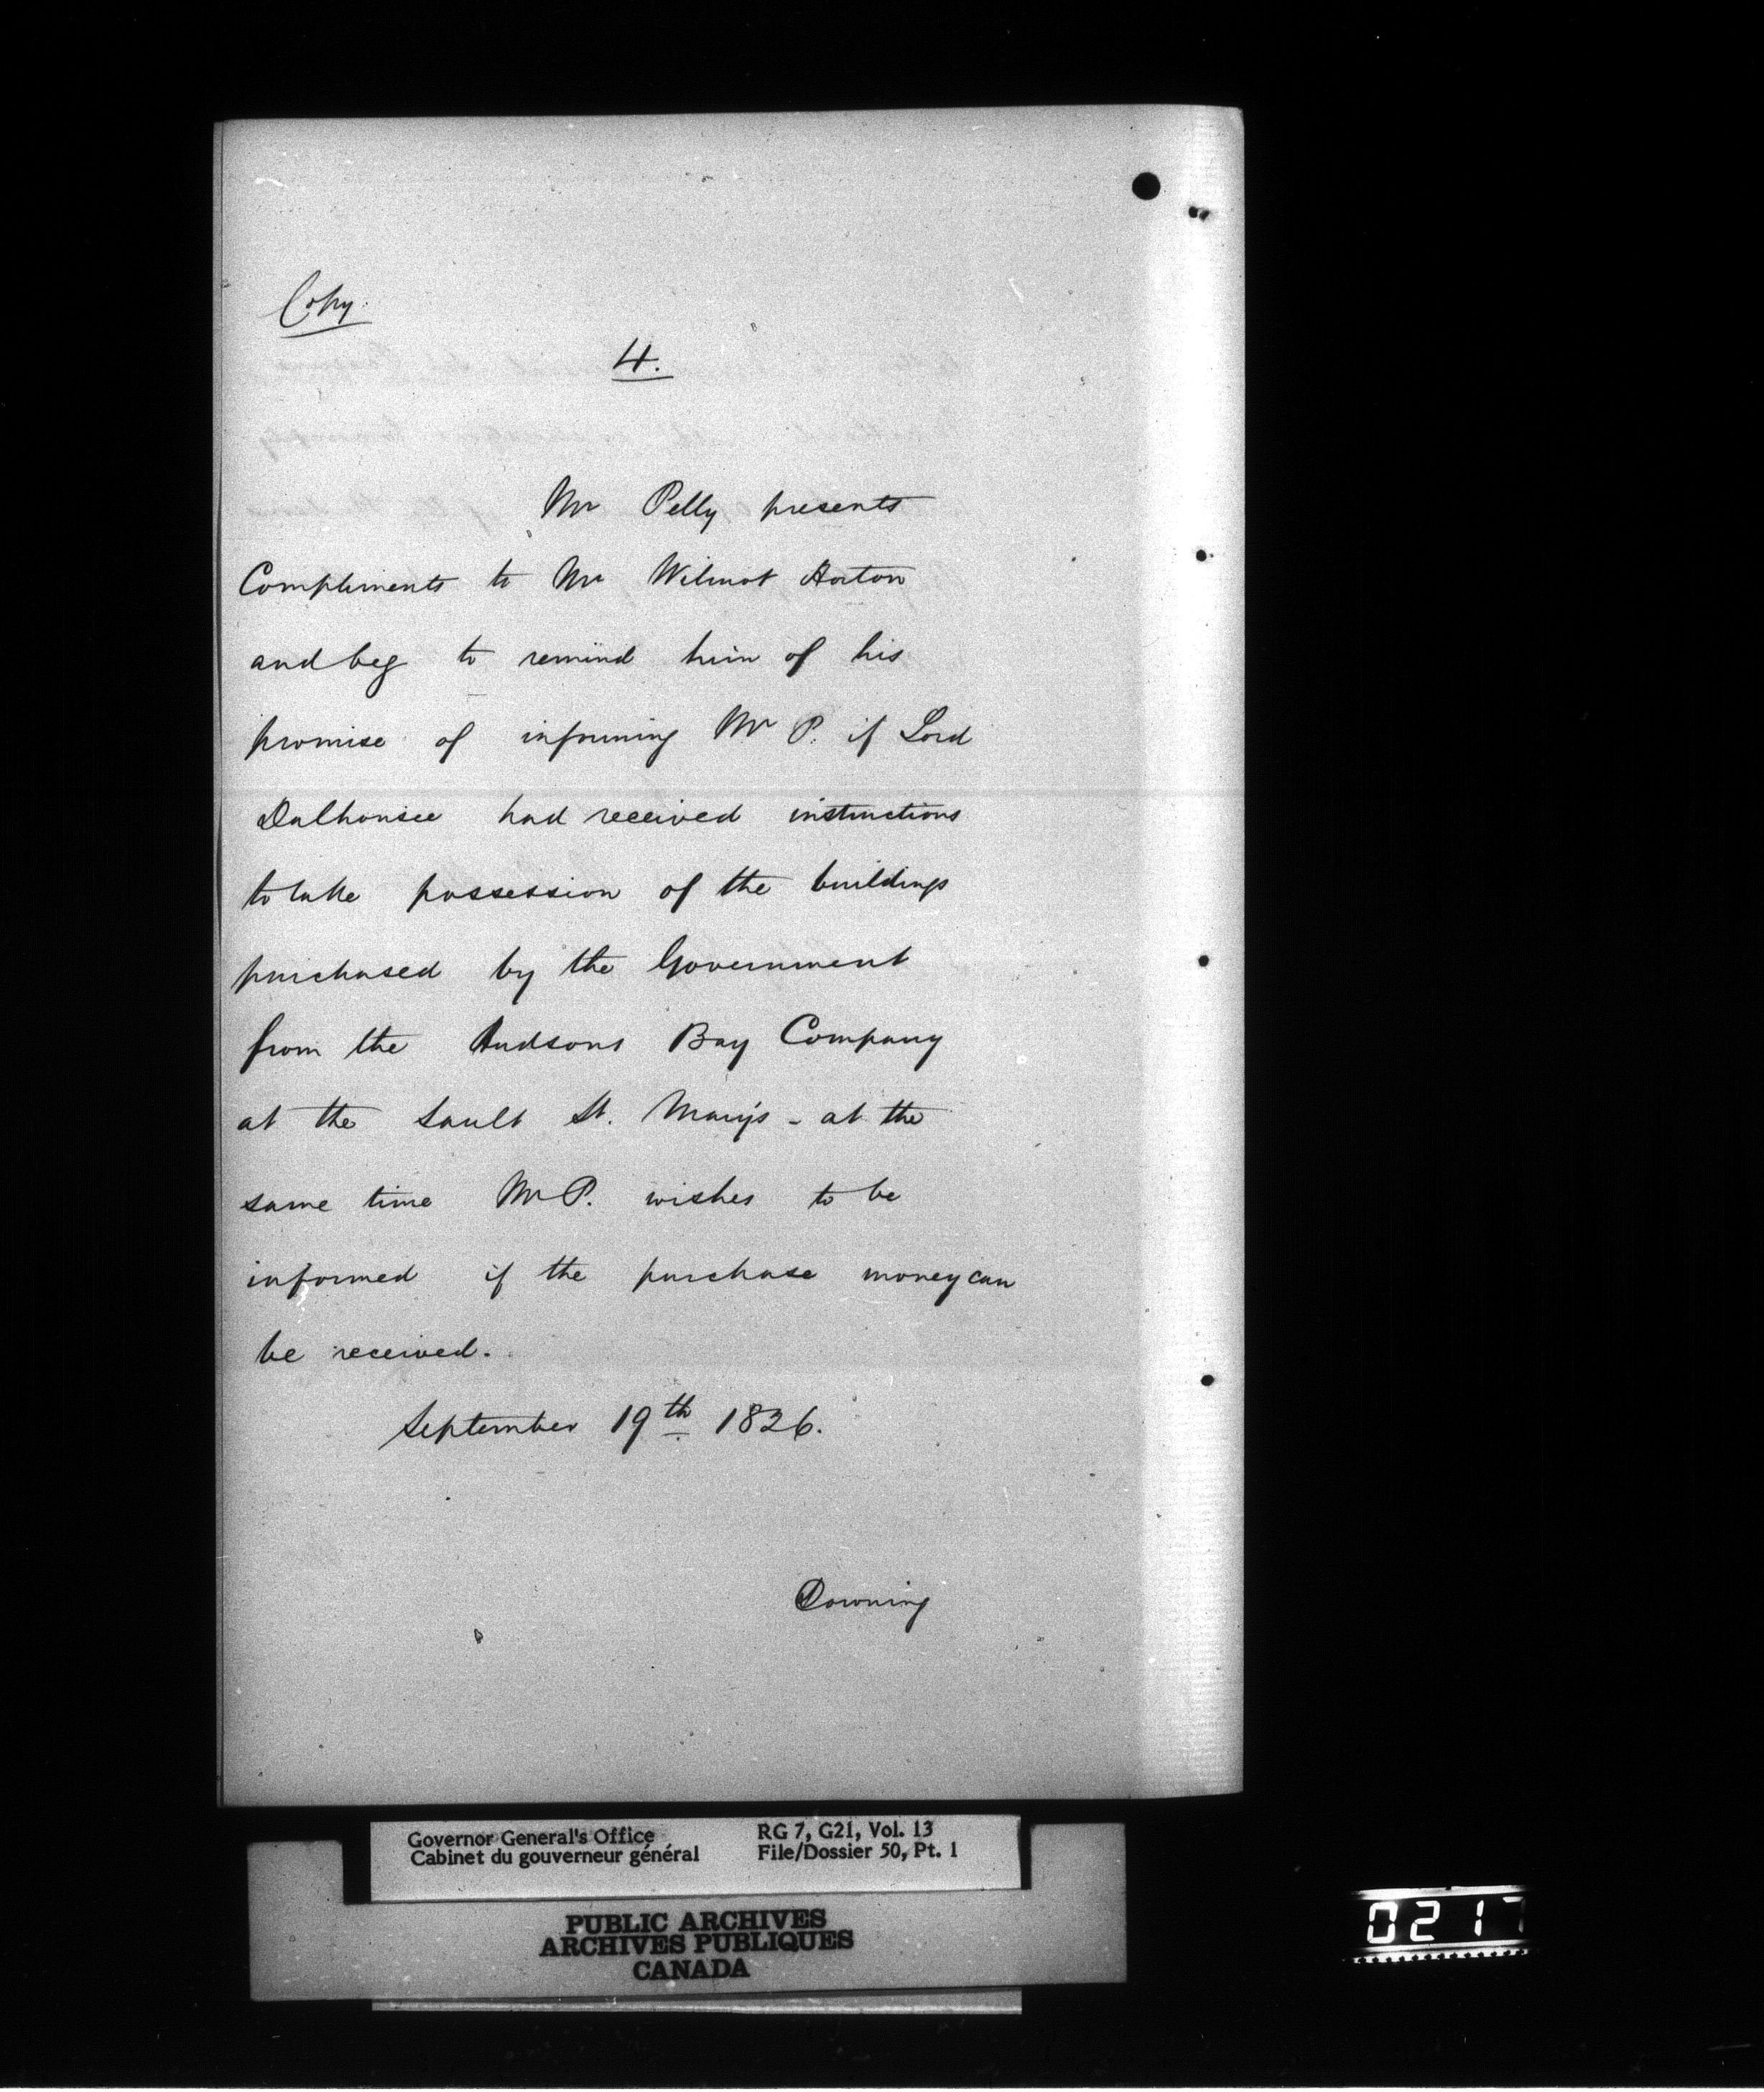 Copy.
4.
Mr Pelly presents
Compliments to Mr Wilmot Horton
and beg to remind him of his
promise of informing Mr P. if Lord
Dalhousie had received instructions
to take possession of the buildings
purchased by the Government
from the Hudsons Bay Company
at the Sault St. Mary's - at the
same time Mr P. wishes to be
informed if the purchase money can
be received.
September 19th 1826.
Downing
Governor General's Office
Cabinet du gouverneur général
RG 7, G21, Vol. 13
File/Dossier 50, Pt. 1
PUBLIC ARCHIVES
ARCHIVES PUBLIQUES
CANADA
0217